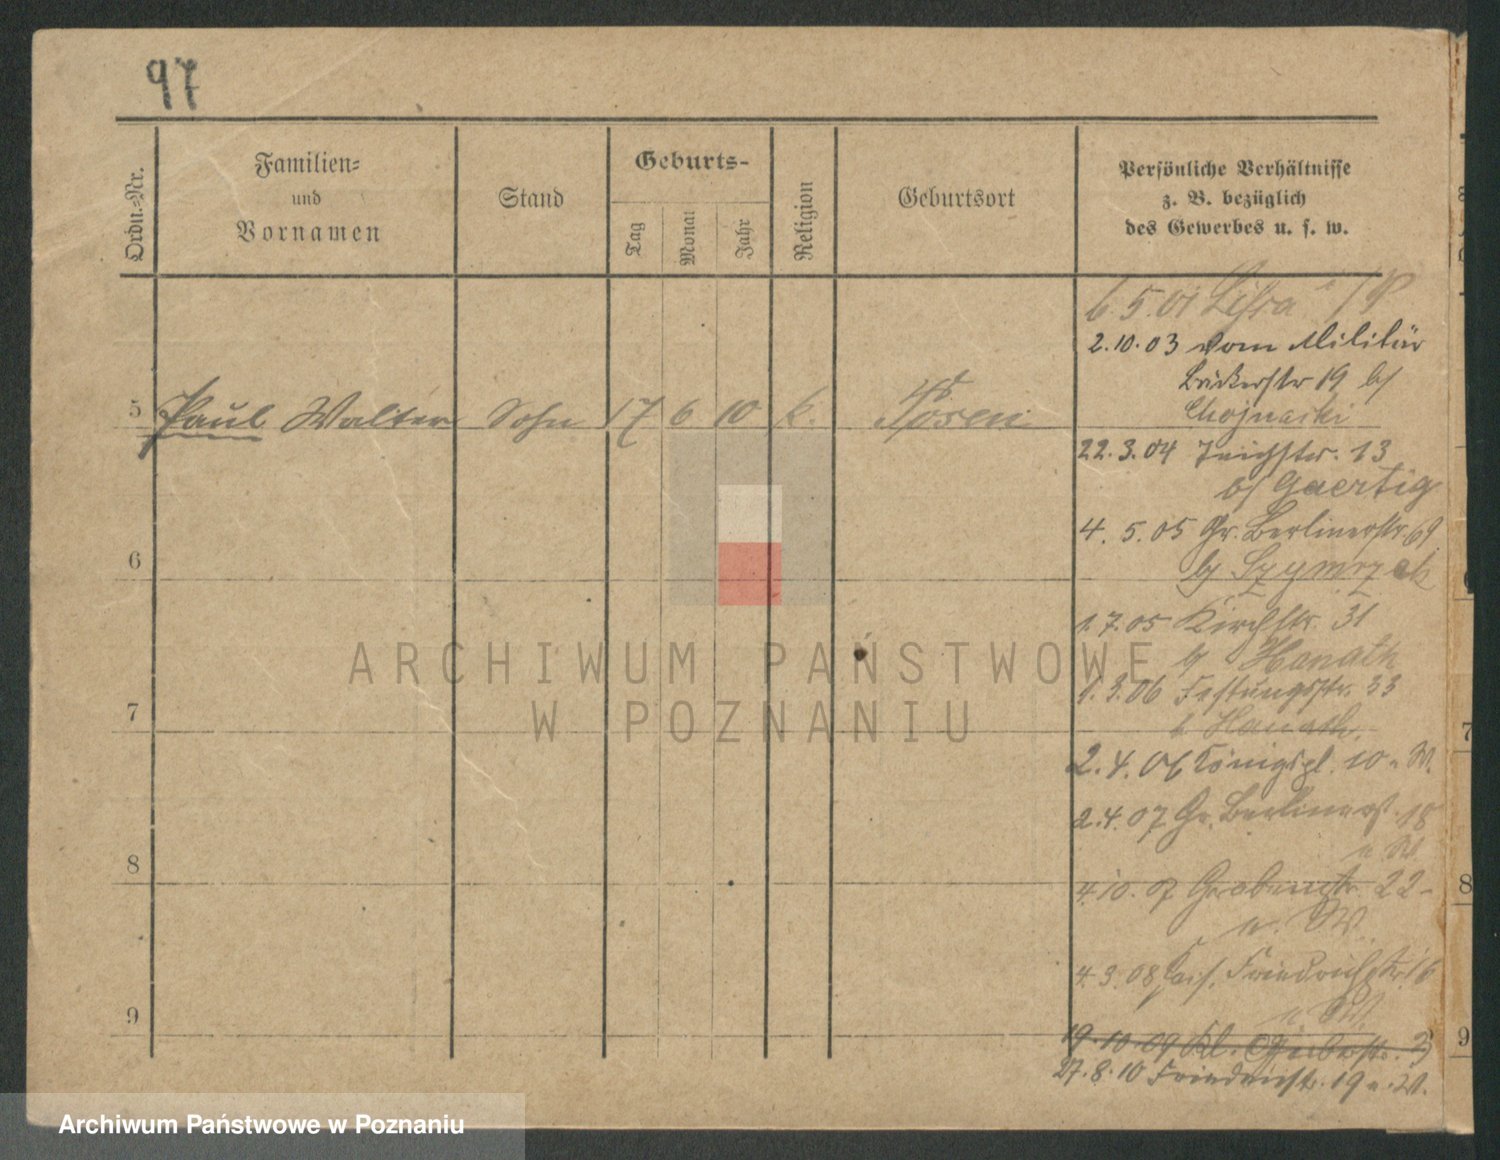 97
Ordn.-Nr.
Familien-
und
Vornamen
Stand
Geburts-
Tag
Monat
Jahr
Religion
Geburtsort
Persönliche Verhältnisse
z. B. bezüglich
des Gewerbes u. s. w.
6.5.01
2.10.03 vom Militär
Bäckerstr 19 b/
Chojnacki
5 Paul Walter Sohn 17 6 10 k. Posen
22.3.04 Teichstr. 13
b/ Gaertig
4.5.05 Gr. Berlinerstr. 69
b/ Szymczak
6
1.7.05 Kirchstr. 31
b/ Hanath
1.3.06 Festungsstr. 33
b Hanath
7
2.4.06 Königspl. 10 a. W.
2.4.07 Gr. Berlinerst. 18
a. W.
8
4.10.07 Grabenstr. 22
a. W.
4.3.08 Kais. Friedrichstr. 16
a. W.
9
19.10.09 Kl. Gerberstr.
27.8.10 Friedrichstr. 19 a. W.
7
8
9
ARCHIWUM PAŃSTWOWE
W POZNANIU
Archiwum Państwowe w Poznaniu